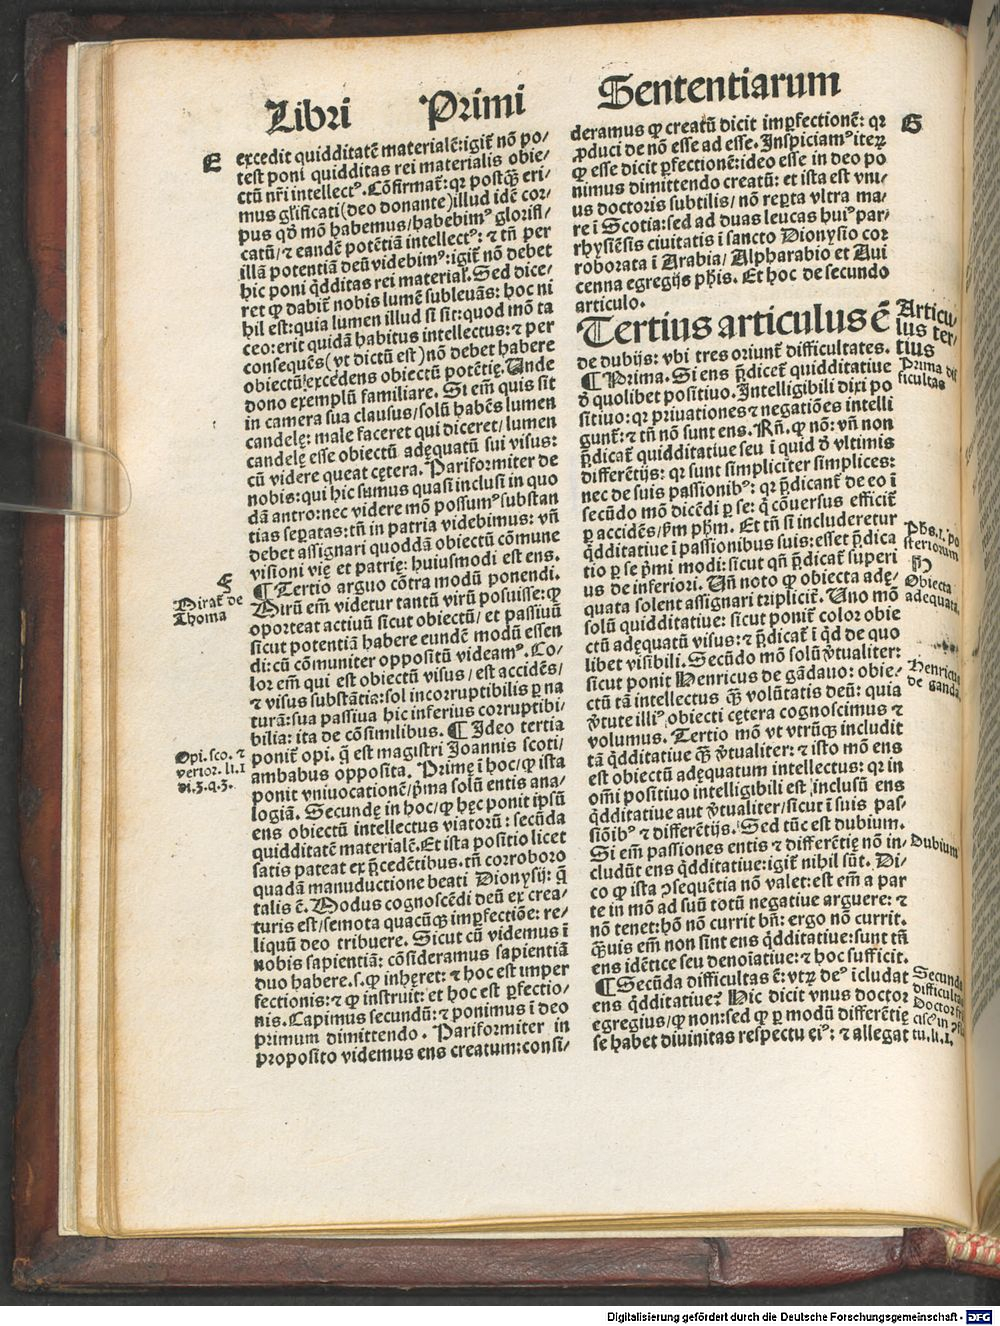 Libri Primi Sententiarum
E
excedit quidditatē materialē:igit̃ nō po/
test poni quidditas rei materialis obie/
ctū nr̃i intellectꝰ. Cōfirmat̃: qꝛ postq̄ȝ eri/
mus gl̃ificati(deo donante)illud idē cor/
pus qd̃ mō habemus/habebimꝰ glorifi/
catū/⁊ eandē potētiā intellectꝰ: ⁊ tñ per
illā potentiā deū videbimꝰ:igit̃ nō debet
hic poni q̇dditas rei material̃. Sed dice/
ret ꝙ dabit̃ nobis lumē subleuās: hoc ni
hil est:quia lumen illud si sit:quod mō ta
ceo:erit quidā habitus intellectus:⁊ per
consequēs(vt dictū est)nō debet habere
obiectū excedens obiectū potētię. Unde
dono exemplū familiare. Si em̄ quis sit
in camera sua clausus/solū habēs lumen
candelę: male faceret qui diceret/lumen
candelę esse obiectū adęquatū sui visus:
cū videre queat cętera. Pariformiter de
nobis:qui hic sumus quasi inclusi in quo
dā antro:nec videre mō possumꝰ substan
tias seꝑatas:tñ in patria videbimus: vñ
debet assignari quoddā obiectū cōmune
visioni vię et patrię: huiusmodi est ens.
F
¶Tertio arguo cōtra modū ponendi.
Mirat̃ de
Thoma
Mirū em̄ videtur tantū virū posuisse:ꝙ
oporteat actiuū sicut obiectū/ et passiuū
sicut potentiā habere eundē modū essen
di:cū cōmuniter oppositū videamꝰ. Co/
lor em̄ qui est obiectū visus/est accidēs/
⁊ visus substātia:sol incorruptibilis ꝑ na
turā:sua passiua hic inferius corruptibi/
bilia: ita de cōsimilibus. ¶Ideo tertia
Opi. sco. ⁊
verior. li.1
di.3.q.3.
ponit̃ opi. q̄ est magistri Joannis scoti/
ambabus opposita. Primę ī hoc/ꝙ ista
ponit vniuocationē/p̄ma solū entis ana/
logiā. Secundę in hoc/ꝙ hęc ponit ipsū
ens obiectū intellectus viatorū: secūda
quidditatē materialē.Et ista positio licet
satis pateat ex p̄cedētibus.tñ corroboro
quadā manuductione beati Dionysij: q̄
talis ē. Modus cognoscēdi deū ex crea/
turis est/semota quacūqȝ imꝑfectiōe: re/
liquū deo tribuere. Sicut cū videmus ī
nobis sapientiā: cōsideramus sapientiā
duo habere.s.ꝙ inhęret: ⁊ hoc est imper
fectionis:⁊ ꝙ instruit: et hoc est ꝑfectio/
nis. Capimus secundū:⁊ ponimus ī deo
primum dimittendo. Pariformiter in
proposito videmus ens creatum:consi/
G
deramus ꝙ creatū dicit imꝑfectionē: qꝛ
ꝓduci de nō esse ad esse. Inspiciamꝰ iteꝝ
ꝙ esse dicit ꝑfectionē:ideo esse in deo po
nimus dimittendo creatū: et ista est vni/
us doctoris subtilis/ nō reꝑta vltra ma/
re ī Scotia:sed ad duas leucas huiꝰ par/
rhysiēsis ciuitatis ī sancto Dionysio cor
roborata ī Arabia/ Alpharabio et Aui
cenna egregijs ph̄is. Et hoc de secundo
articulo.
Tertius articulus ē
Articu/
lus ter/
tius
de dubijs: vbi tres oriunt̃ difficultates.
Prima dif
ficultas
¶Prima. Si ens p̄dicet̃ quidditatiue
ď quolibet positiuo. Intelligibili dixi po
sitiuo: qꝛ priuationes ⁊ negatiōes intelli
gunt̃: ⁊ tñ nō sunt ens. Rñ. ꝙ nō: vñ non
p̄dicat̃ quidditatiue seu ī quid ď vltimis
differētijs: qꝛ sunt simpliciter simplices:
nec de suis passionibꝰ: qꝛ p̄dicant̃ de eo ī
secūdo mō dicēdi ꝑ se: q̄ cōuersus efficit̃
ꝑ accidēs/ẜm ph̄m. Et tñ si includeretur
Phs.1. po
steriorum
q̇dditatiue ī passionibus suis:esset p̄dica
tio ꝑ se p̄mi modi:sicut qñ p̄dicat̃ superi
us de inferiori. Uñ noto ꝙ obiecta adę/
Obiecta
adequata
quata solent assignari triplicit̃. Uno mō
solū quidditatiue: sicut ponit̃ color obie
ctū adęquatū visus:⁊ p̄dicat̃ ī q̇d de quo
libet visibili. Secūdo mō solū v̇tualiter:
sicut ponit Henricus de gādauo: obie/
Henricus
de ganda.
ctū tā intellectus q̄ȝ volūtatis deū: quia
v̇tute illiꝰ obiecti cętera cognoscimus ⁊
volumus. Tertio mō vt vtrūqȝ includit
tā q̇dditatiue q̄ȝ v̇tualiter: ⁊ isto mō ens
est obiectū adęquatum intellectus: qꝛ in
om̄i positiuo intelligibili est inclusū ens
q̇dditatiue aut v̇tualiter/sicut ī suis pas/
siōibꝰ ⁊ differētijs. Sed tūc est dubium.
Dubium
Si em̄ passiones entis ⁊ differētię nō in/
cludūt ens q̇dditatiue:igit̃ nihil sūt. Di/
co ꝙ ista ↄsequētia nō valet:est em̄ a par
te in mō ad suū totū negatiue arguere: ⁊
nō tenet:hō nō currit bñ: ergo nō currit.
q̄ȝuis em̄ non sint ens q̇dditatiue:sunt tñ
ens idētice seu denoīatiue:⁊ hoc sufficit.
¶Secūda difficultas ē: vtꝝ deꝰ īcludat
Secunda
difficultas
ens q̇dditatiue? Hic dicit vnus doctor
egregius/ꝙ non:sed ꝙ ꝑ modū differētię
se habet diuinitas respectu eiꝰ: ⁊ allegat
tu.li.1.
Digitalisierung gefördert durch die Deutsche Forschungsgemeinschaft - DFG